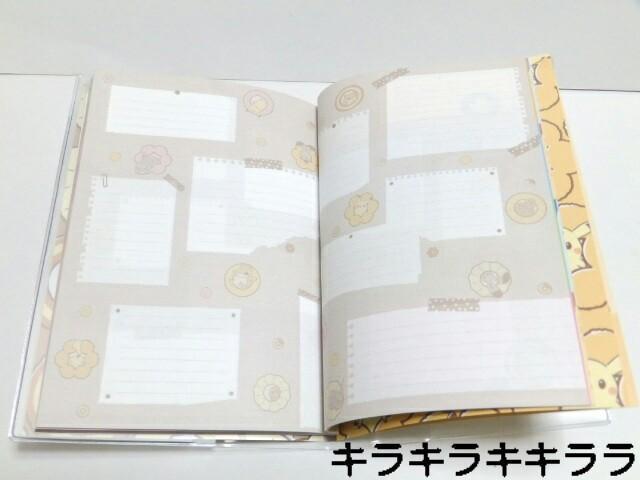 キラキラキキララ